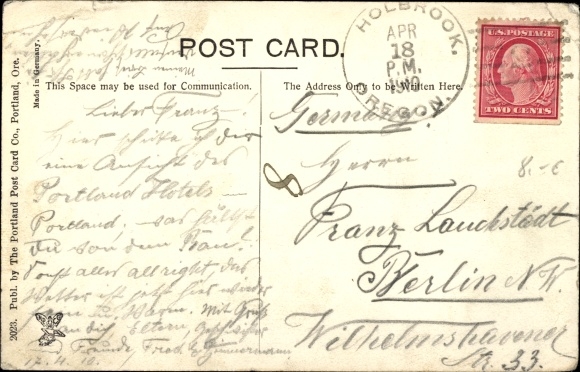 POST CARD.
This Space may be used for Communication.
The Address Only to be Written Here.
HOLBROOK,
APR
18
P.M.
1910
OREGON.
U.S. POSTAGE
TWO CENTS
2023. Publ. by The Portland Post Card Co., Portland, Ore.
Made in Germany.
Lieber Franz!
Hier schicke ich dir
eine Ansicht des
Portland Hotels
Portland, was hältst
du von dem Bau?
Sonst alles all right, das
Wetter ist jetzt hier wieder
Warm. Mit Gruß
an dich, Eltern, Geschwister
und Freunde, Fred. Zimmermann
17.4.10.
Germany.
8
8.-€
Herrn
Franz Lauckstädt
Berlin N.W.
Wilhelmshavener
Str. 33.